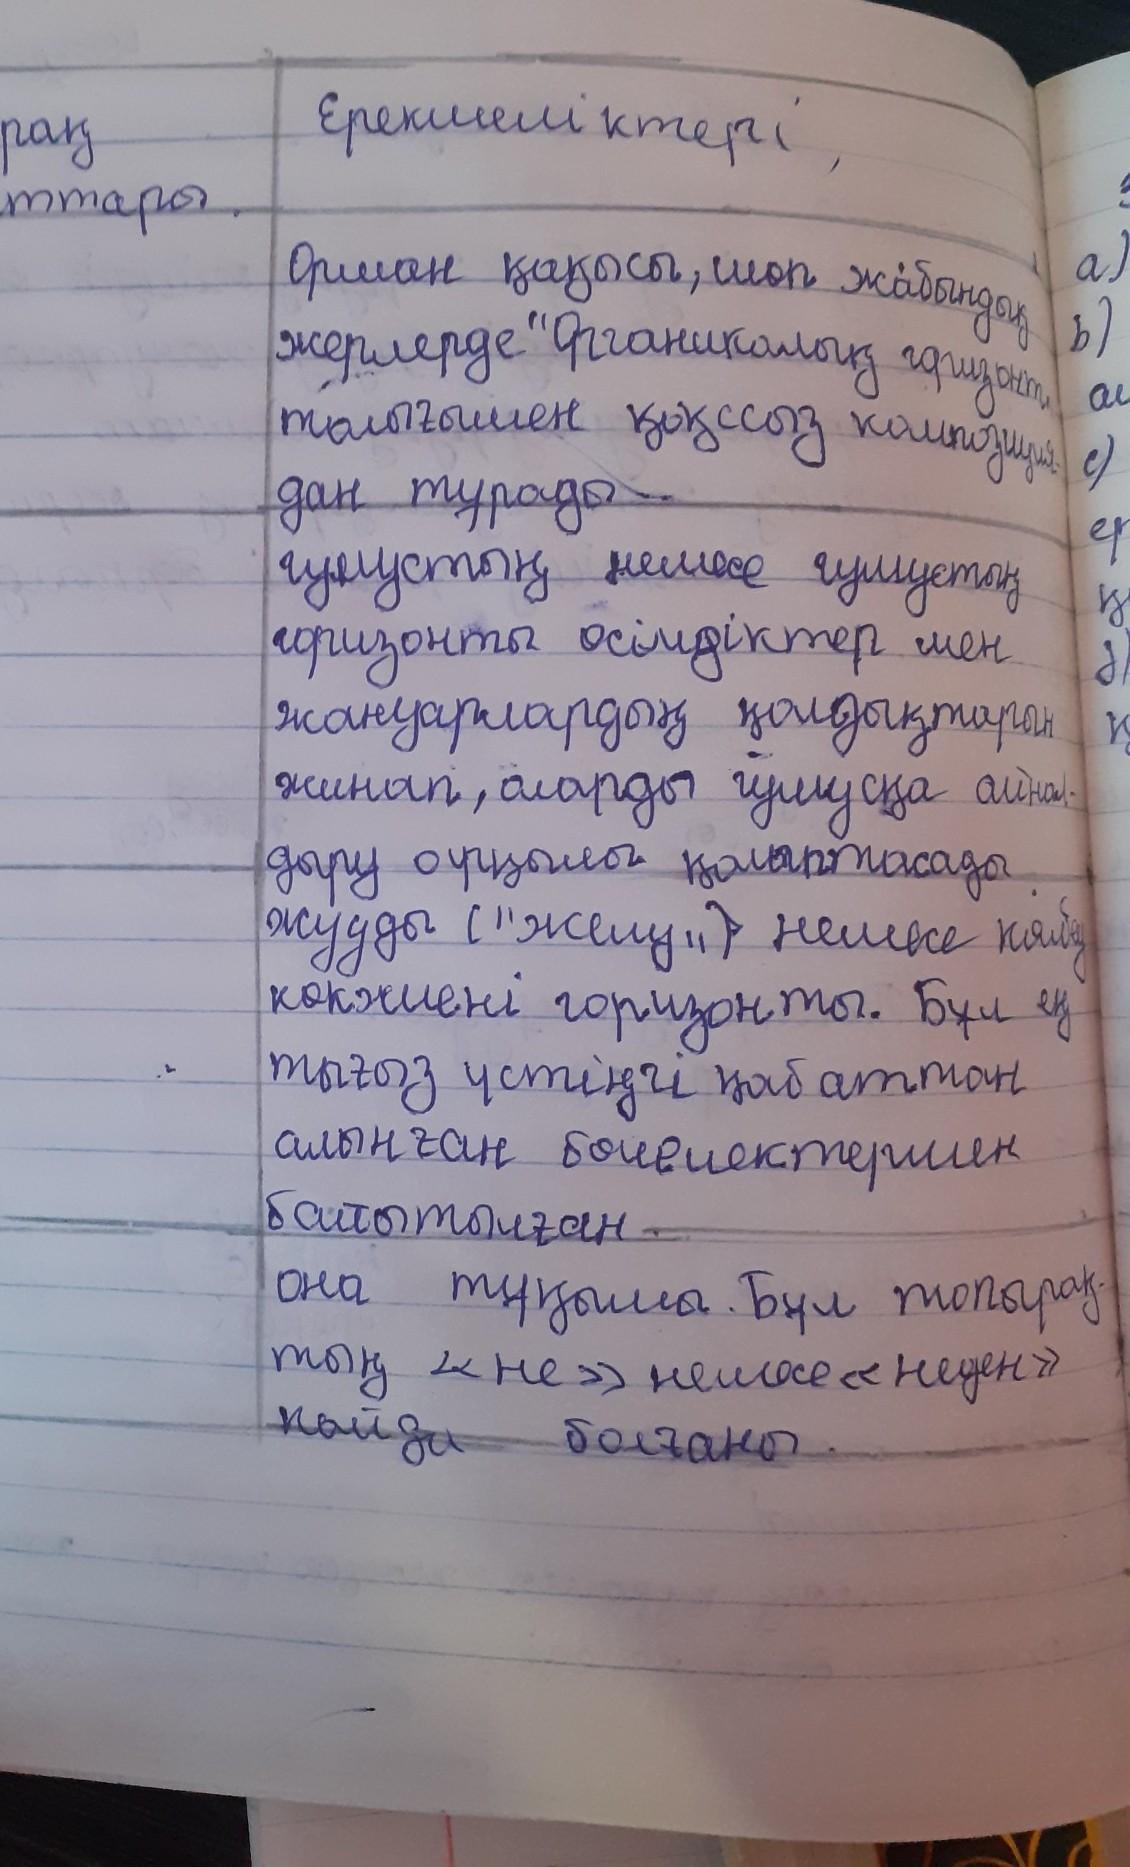 рақ
ттары.
Ерекшеліктері,
Орман қақысы, шөп жабындық
жерлерде "Органикалық горизонт.
толығымен қоқссыз композиция-
дан тұрады
гумустың немесе гумустың
горизонты өсімдіктер мен
жануарлардың қалдықтарын
жинап, оларды гумусқа айнал-
дыру арқылы қалыптасады
жууды ("желу") немесе
көкжиені горизонты. Бұл ең
тығыз үстіңгі қабаттан
алынған бөлшектермен
байытылған
она тұқымы. Бұл топырақ-
тың «не» немесе «неден»
пайда болғаны.
а)
b)
c)